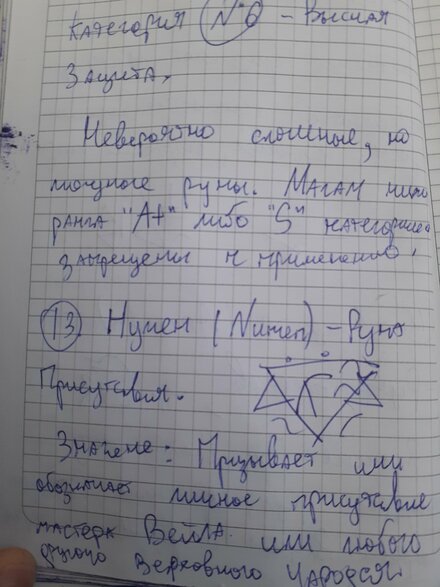 Категория №6 - Высшая
Защита.
Невероятно сложные, но
мощные руны. Магам ниже
ранга "A+" либо "S" категрически
запрещены к применению.
13. Нумен (Numen) - Руна
Присутствия.
Значение: Призывает или
обозначает личное присутствие
мастера Вейла или любого
другого верховного чародея.